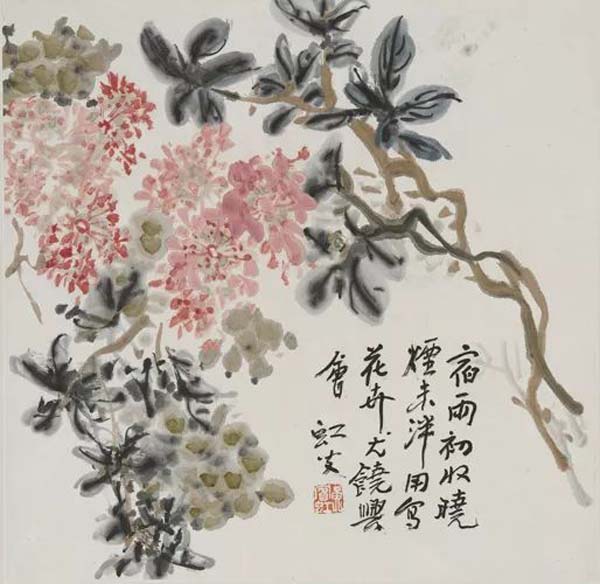 宿雨初收曉
煙未泮用寫
花卉尤饒興
會 虹叟